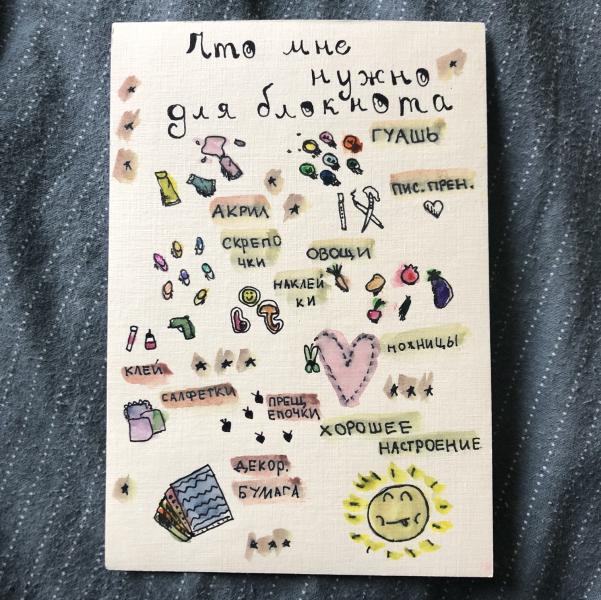 Что мне
нужно
для блокнота
ГУАШЬ
ПИС. ПРЕН.
АКРИЛ
СКРЕПО
ЧКИ
ОВОЩИ
НАКЛЕЙ
КИ
НОЖНИЦЫ
КЛЕЙ
САЛФЕТКИ
ПРЕЩ
ЕПОЧКИ
ХОРОШЕЕ
НАСТРОЕНИЕ
ДЕКОР.
БУМАГА